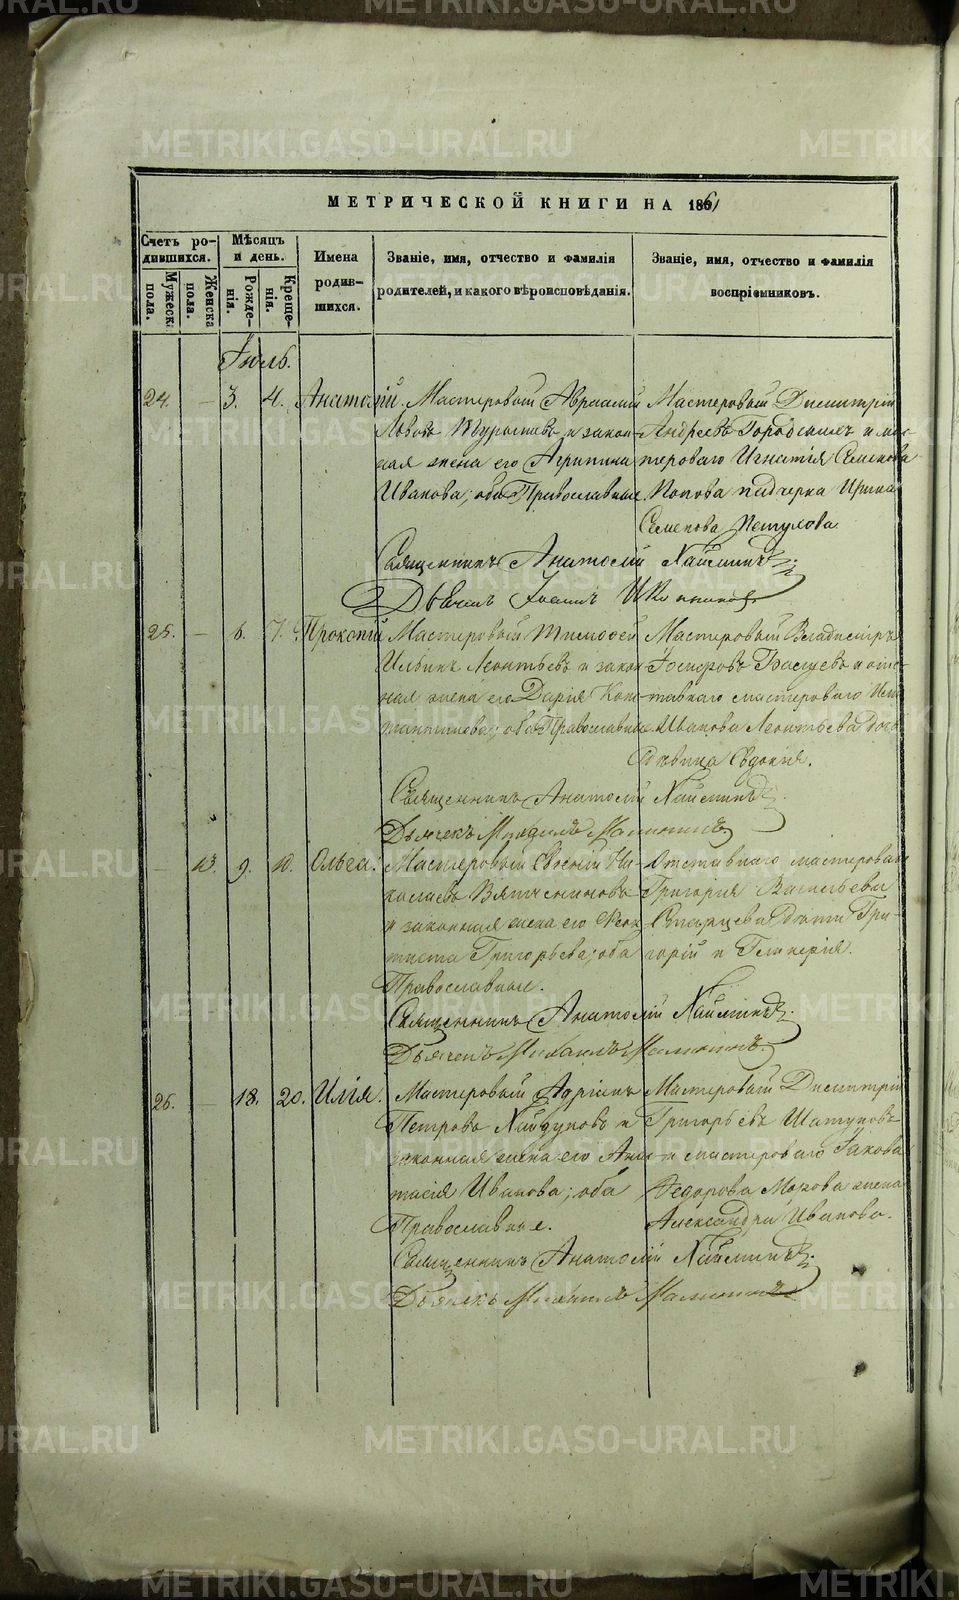 МЕТРИЧЕСКОЙ КНИГИ НА 1861
Счетъ ро-
дившихся.
Мѣсяцъ
и день.
Мужеска
пола.
Женска
пола.
Рожде-
нія.
Креще-
нія.
Имена
родив-
шихся.
Званіе, имя, отчество и фамилія
родителей, и какого вѣроисповѣданія.
Званіе, имя, отчество и фамилія
воспріемниковъ.
Іюль.
24. — 3. 4. Анатолій.
Мастеровой Авраамій
Львовъ и закон-
ная жена его Агрипина
Иванова; оба Православные
Мастеровой Димитрій
Андреевъ и мас-
тероваго Игнатія Семенова
Попова падчерка Ирина
Семенова Петухова
Священникъ Анатолій
Дьячекъ Іоаннъ
25. — 6. 7. Прокопій
Мастеровой Тимофей
Ильинъ Леонтьевъ и закон-
ная жена его Дарія Конс-
тантинова; оба Православные
Мастеровой Владиміръ
Іосифовъ и отс-
тавнаго мастероваго
Иванова Леонтьева дочь
дѣвица Евдокія.
Священникъ Анатолій
Дьячекъ Михаилъ Малининъ
— 13. 9. 10. Ольга.
Мастеровой Евгеній Ни-
колаевъ
и законная жена его Феок-
тиста Григорьева; оба
Православные.
Отставнаго мастероваго
Григорія Васильева
Старцева дѣти Гри-
горій и Гликерія.
Священникъ Анатолій
Дьячекъ Михаилъ Малининъ.
26. — 18. 20. Илія.
Мастеровой Адріанъ
Петровъ Кайдуловъ и
законная жена его Анас-
тасія Иванова; оба
Православные.
Мастеровой Димитрій
Григорьевъ Шатуновъ
и мастероваго Іакова
Федорова Мохова жена
Александра Иванова.
Священникъ Анатолій
Дьячекъ Михаилъ Малининъ
METRIKI.GASO-URAL.RU